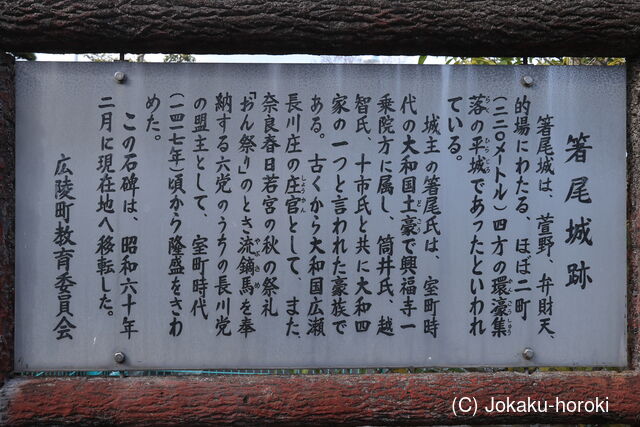 箸尾城跡
箸尾城は、萱野、弁財天、
的場にわたる、ほぼ二町
(二二〇メートル)四方の環濠集
落の平城であったといわれ
ている。
城主の箸尾氏は、室町時
代の大和国土豪で興福寺一
乗院方に属し、筒井氏、越
智氏、十市氏と共に大和四
家の一つと言われた豪族で
ある。古くから大和国広瀬
長川庄の庄官として、また、
奈良春日若宮の秋の祭礼
「おん祭り」のとき流鏑馬を奉
納する六党のうちの長川党
の盟主として、室町時代
(一四一七年)頃から隆盛をきわ
めた。
この石碑は、昭和六十年
二月に現在地へ移転した。
広陵町教育委員会
(C) Jokaku-horoki